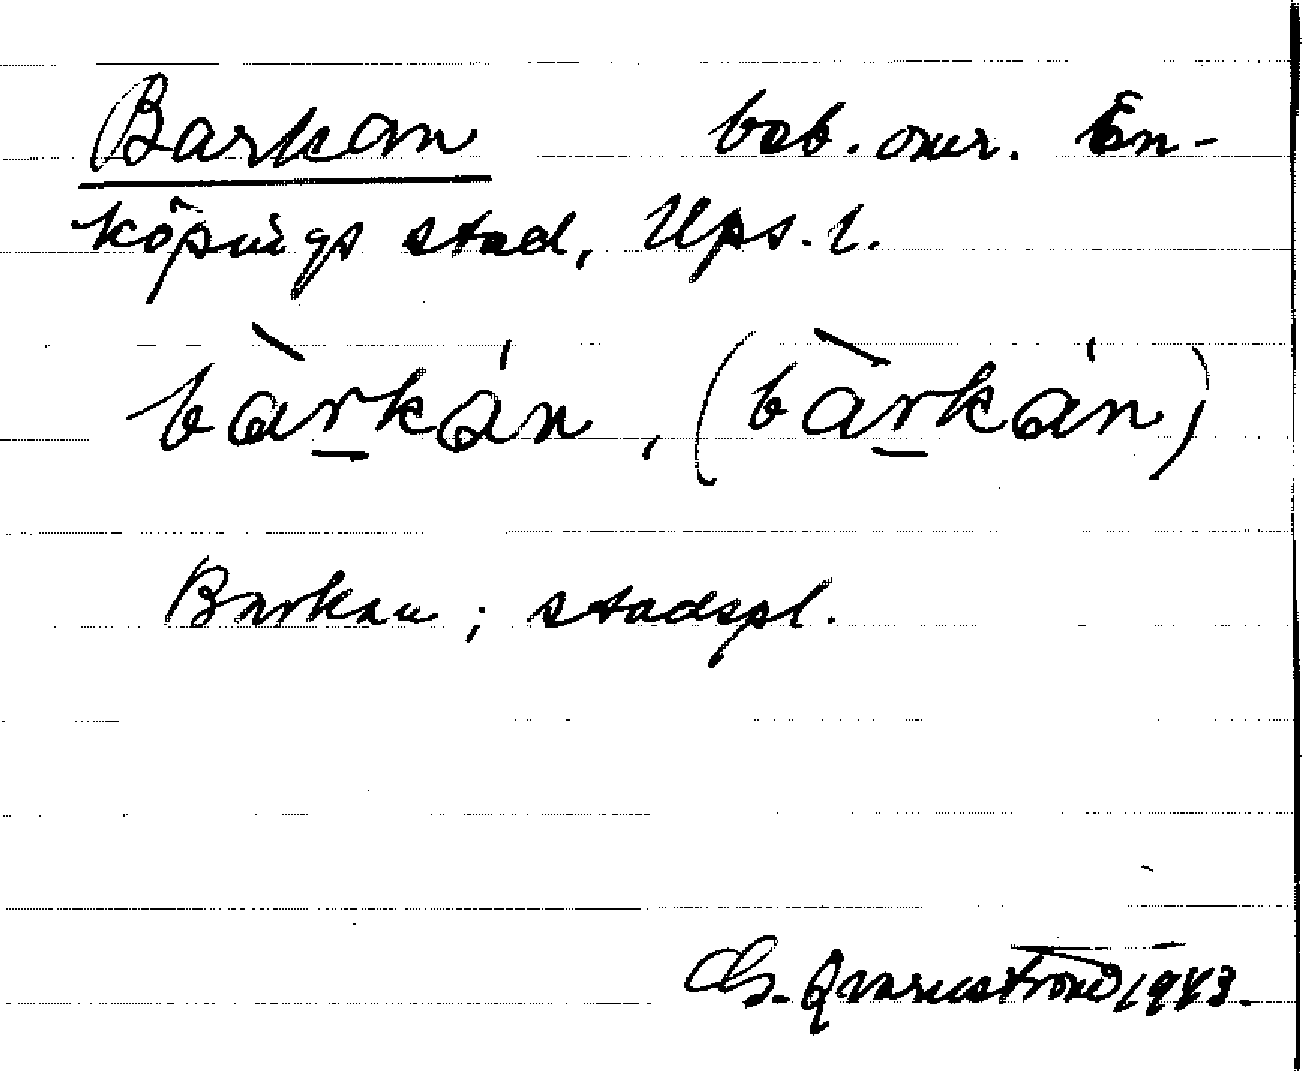 Barkan beb. omr. En-
köpings stad, Ups. l.
bàrkán, (bàrkán)
Barkan; stadspl.
G. Qvarnström 1943.